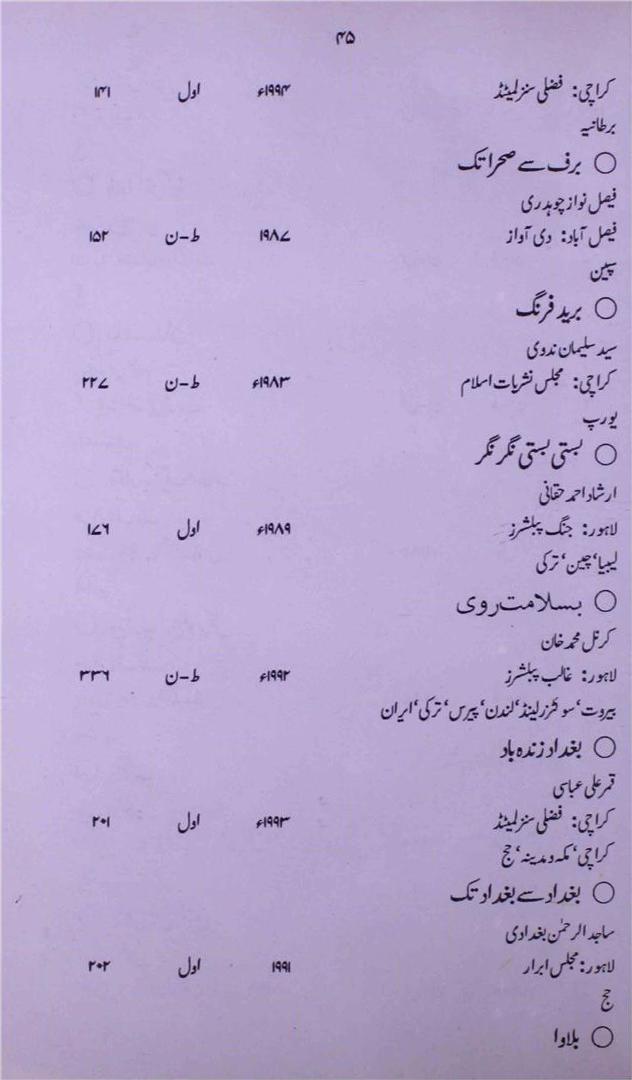 ۴۵
کراچی: فضلی سنز لمیٹڈ ۱۹۹۴ء اول ۱۴۱
برطانیہ
○ برف سے صحرا تک
فیصل نواز چوہدری
فیصل آباد: دی آواز ۱۹۸۷ ط-ن ۱۵۲
سپین
○ برید فرنگ
سید سلیمان ندوی
کراچی: مجلس نشریات اسلام ۱۹۸۳ء ط-ن ۲۲۷
یورپ
○ بستی بستی نگر نگر
ارشاد احمد حقانی
لاہور: جنگ پبلشرز ۱۹۸۹ء اول ۱۷۶
لیبیا‘ چین‘ ترکی
○ بسلامت روی
کرنل محمد خان
لاہور: غالب پبلشرز ۱۹۹۲ء ط-ن ۳۳۶
بیروت‘ سوئٹزرلینڈ‘ لندن‘ پیرس‘ ترکی‘ ایران
○ بغداد زندہ باد
قمر علی عباسی
کراچی: فضلی سنز لمیٹڈ ۱۹۹۳ء اول ۲۰۱
کراچی‘ مکہ و مدینہ‘ حج
○ بغداد سے بغداد تک
ساجد الرحمٰن بغدادی
لاہور: مجلس ابرار ۱۹۹۱ اول ۲۰۲
حج
○ بلاوا